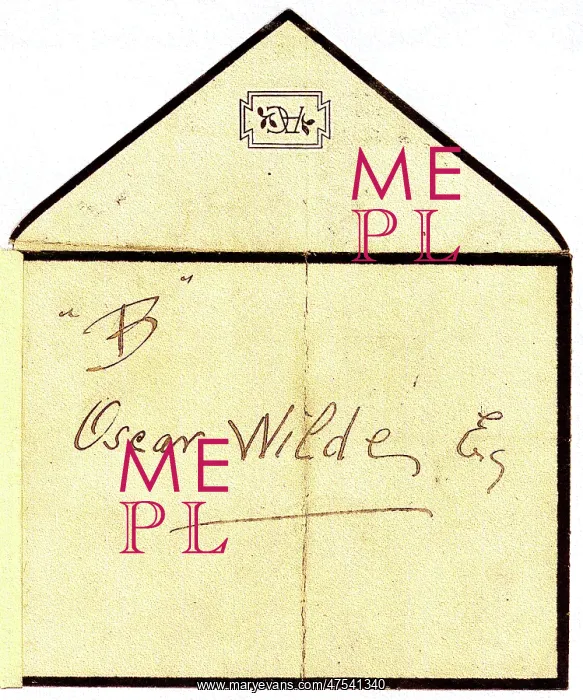 ME
PL
"B"
Oscar Wilde, Eq
ME
PL
www.maryevans.com/47541340